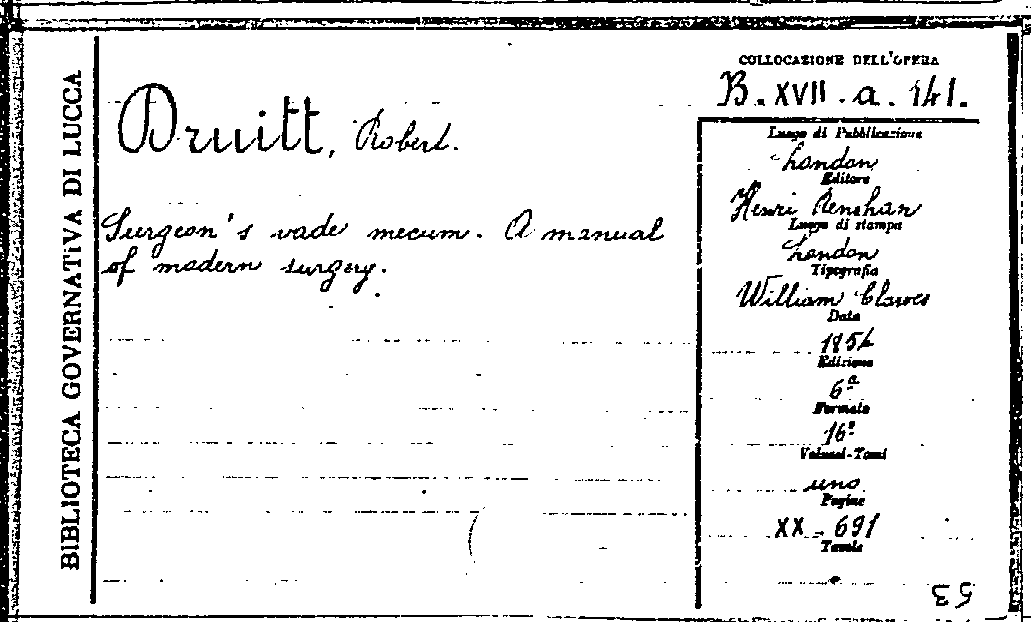 BIBLIOTECA GOVERNATIVA DI LUCCA
Druitt, Robert.
Surgeon's vade mecum. A manual
of modern surgery.
COLLOCAZIONE DELL'OPERA
B. XVII. a. 141.
Luogo di Pubblicazione
London
Editore
Henri Renshan
Luogo di stampa
London
Tipografia
William Clowes
Data
1854
Edizione
6ª
Formato
16º
Volumi-Tomi
uno
Pagine
XX - 691
Tavole
53